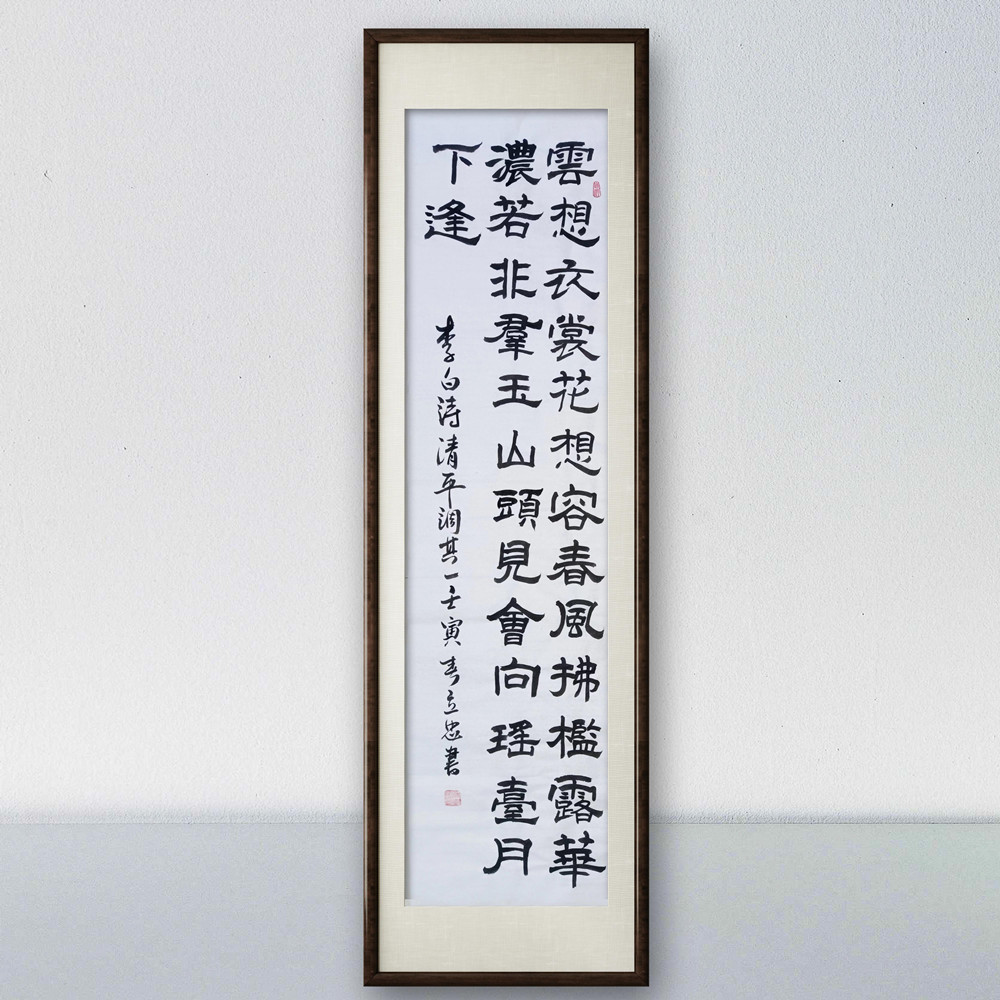 雲想衣裳花想容春風拂檻露華
濃若非羣玉山頭見會向瑤臺月
下逢
李白诗清平调其一壬寅春立忠書